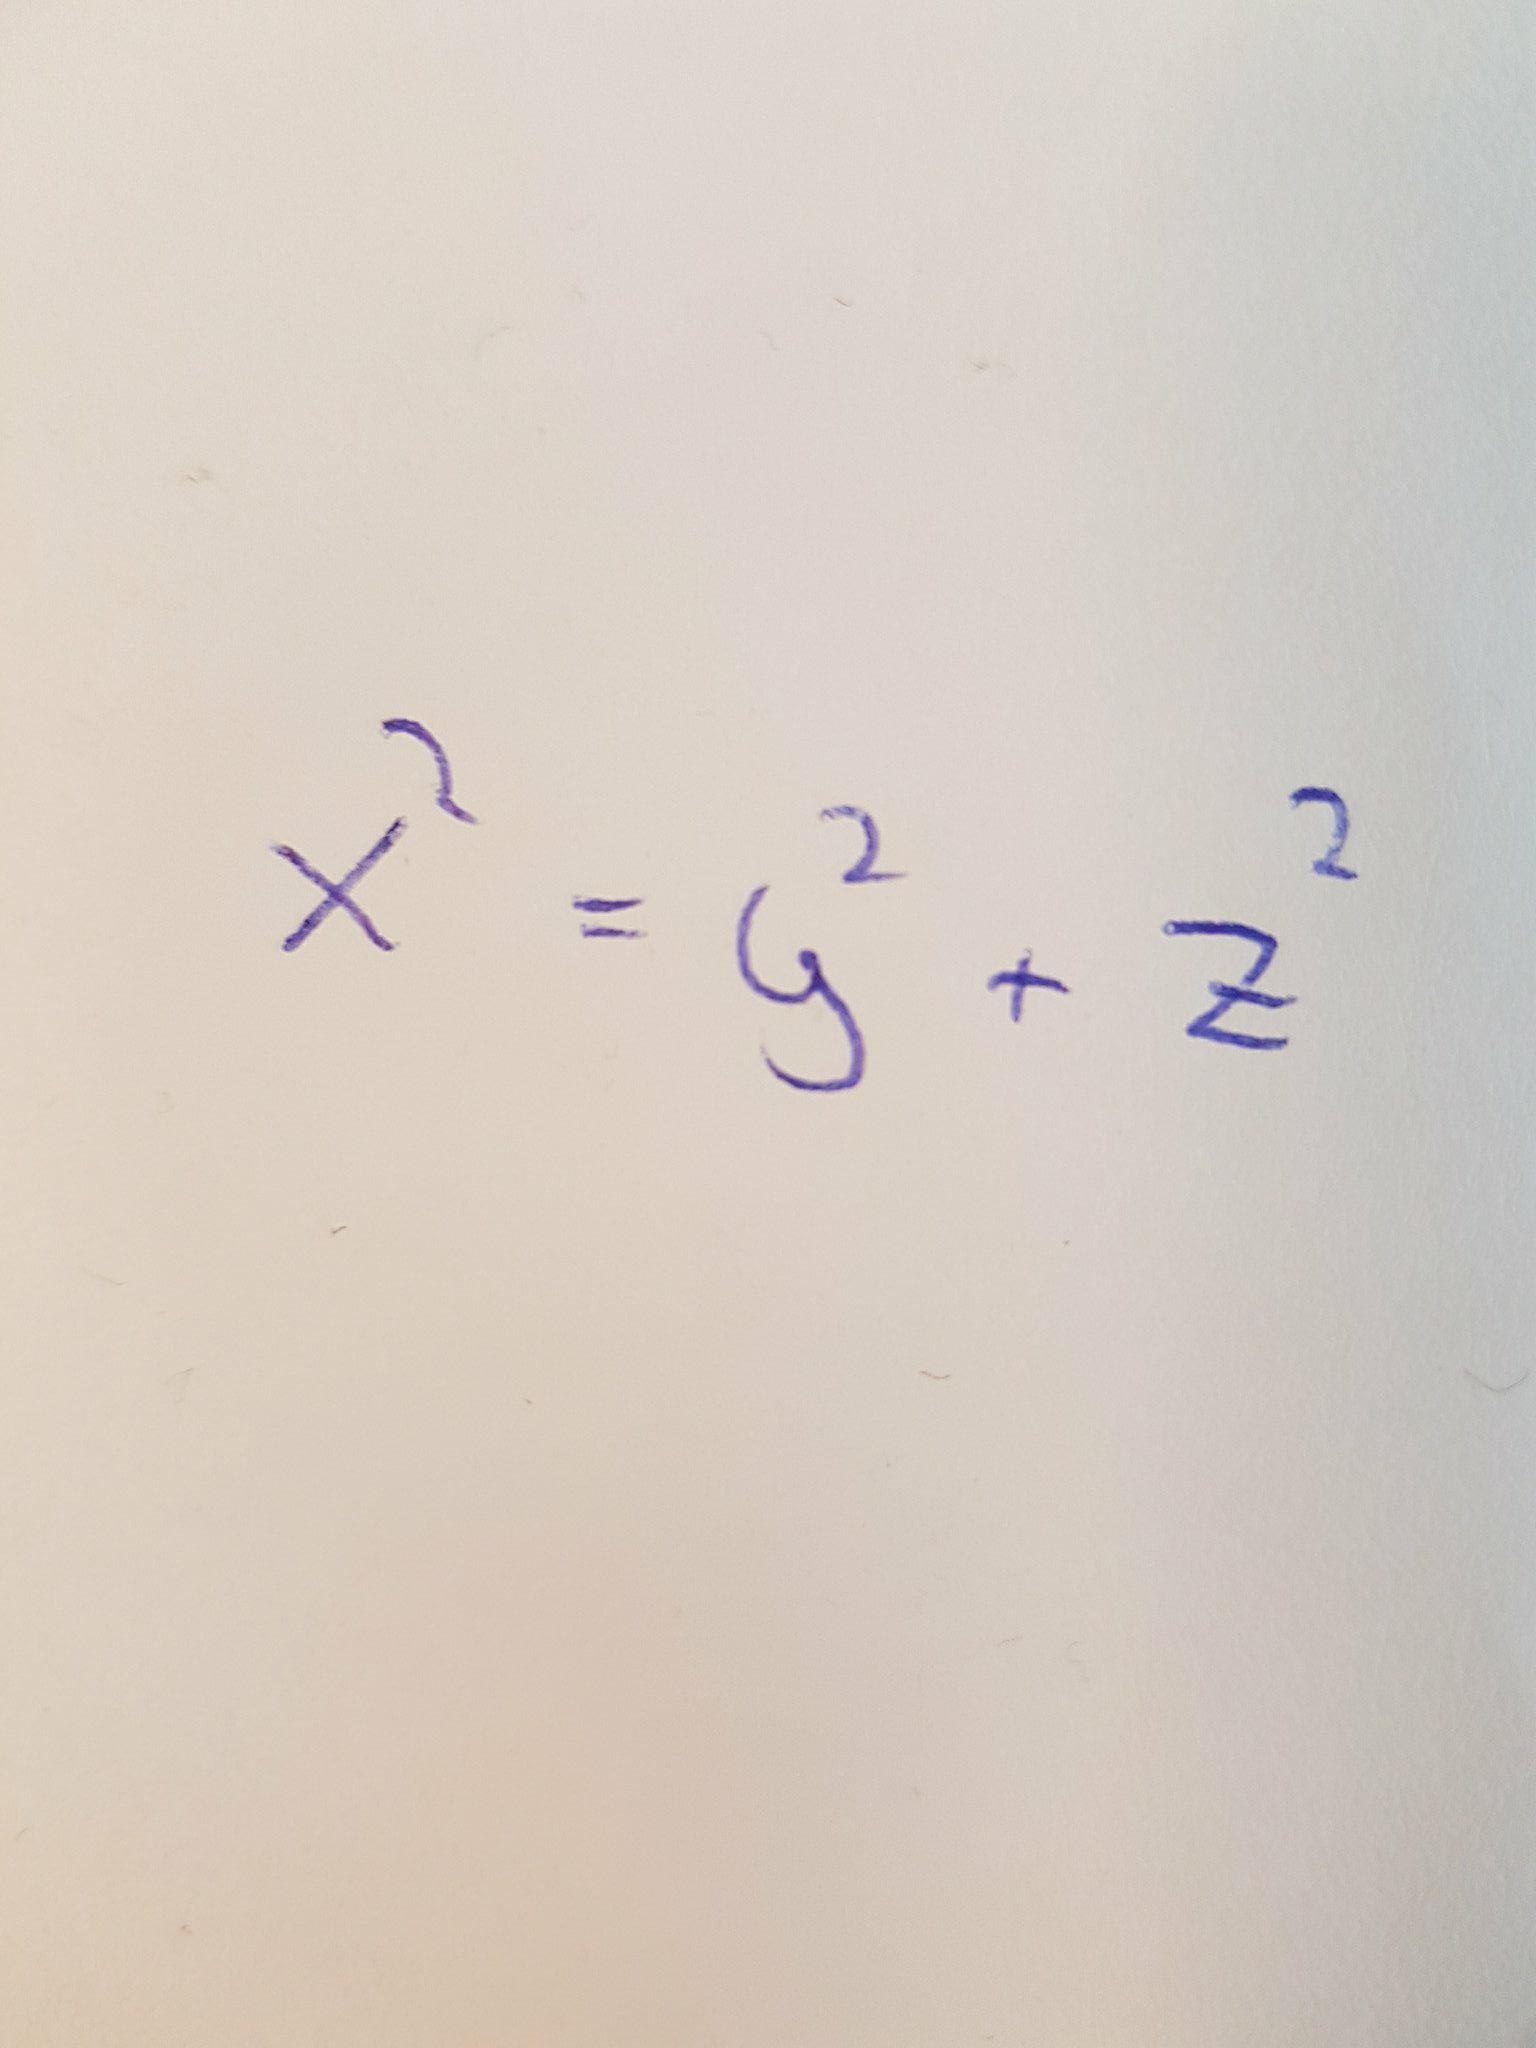 x² = y² + z²